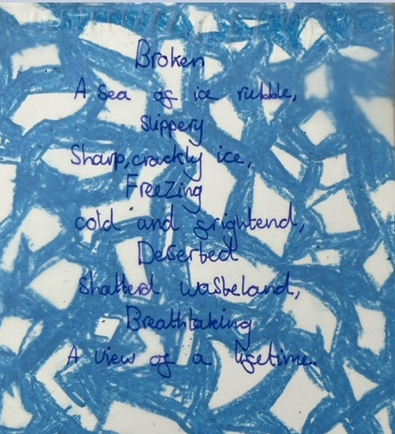 Broken
A Sea of ice rubble,
slippery
Sharp, crackly ice,
Freezing
cold and frightend,
Deserted
shatterd wasteland,
Breathtaking
A view of a lifetime.